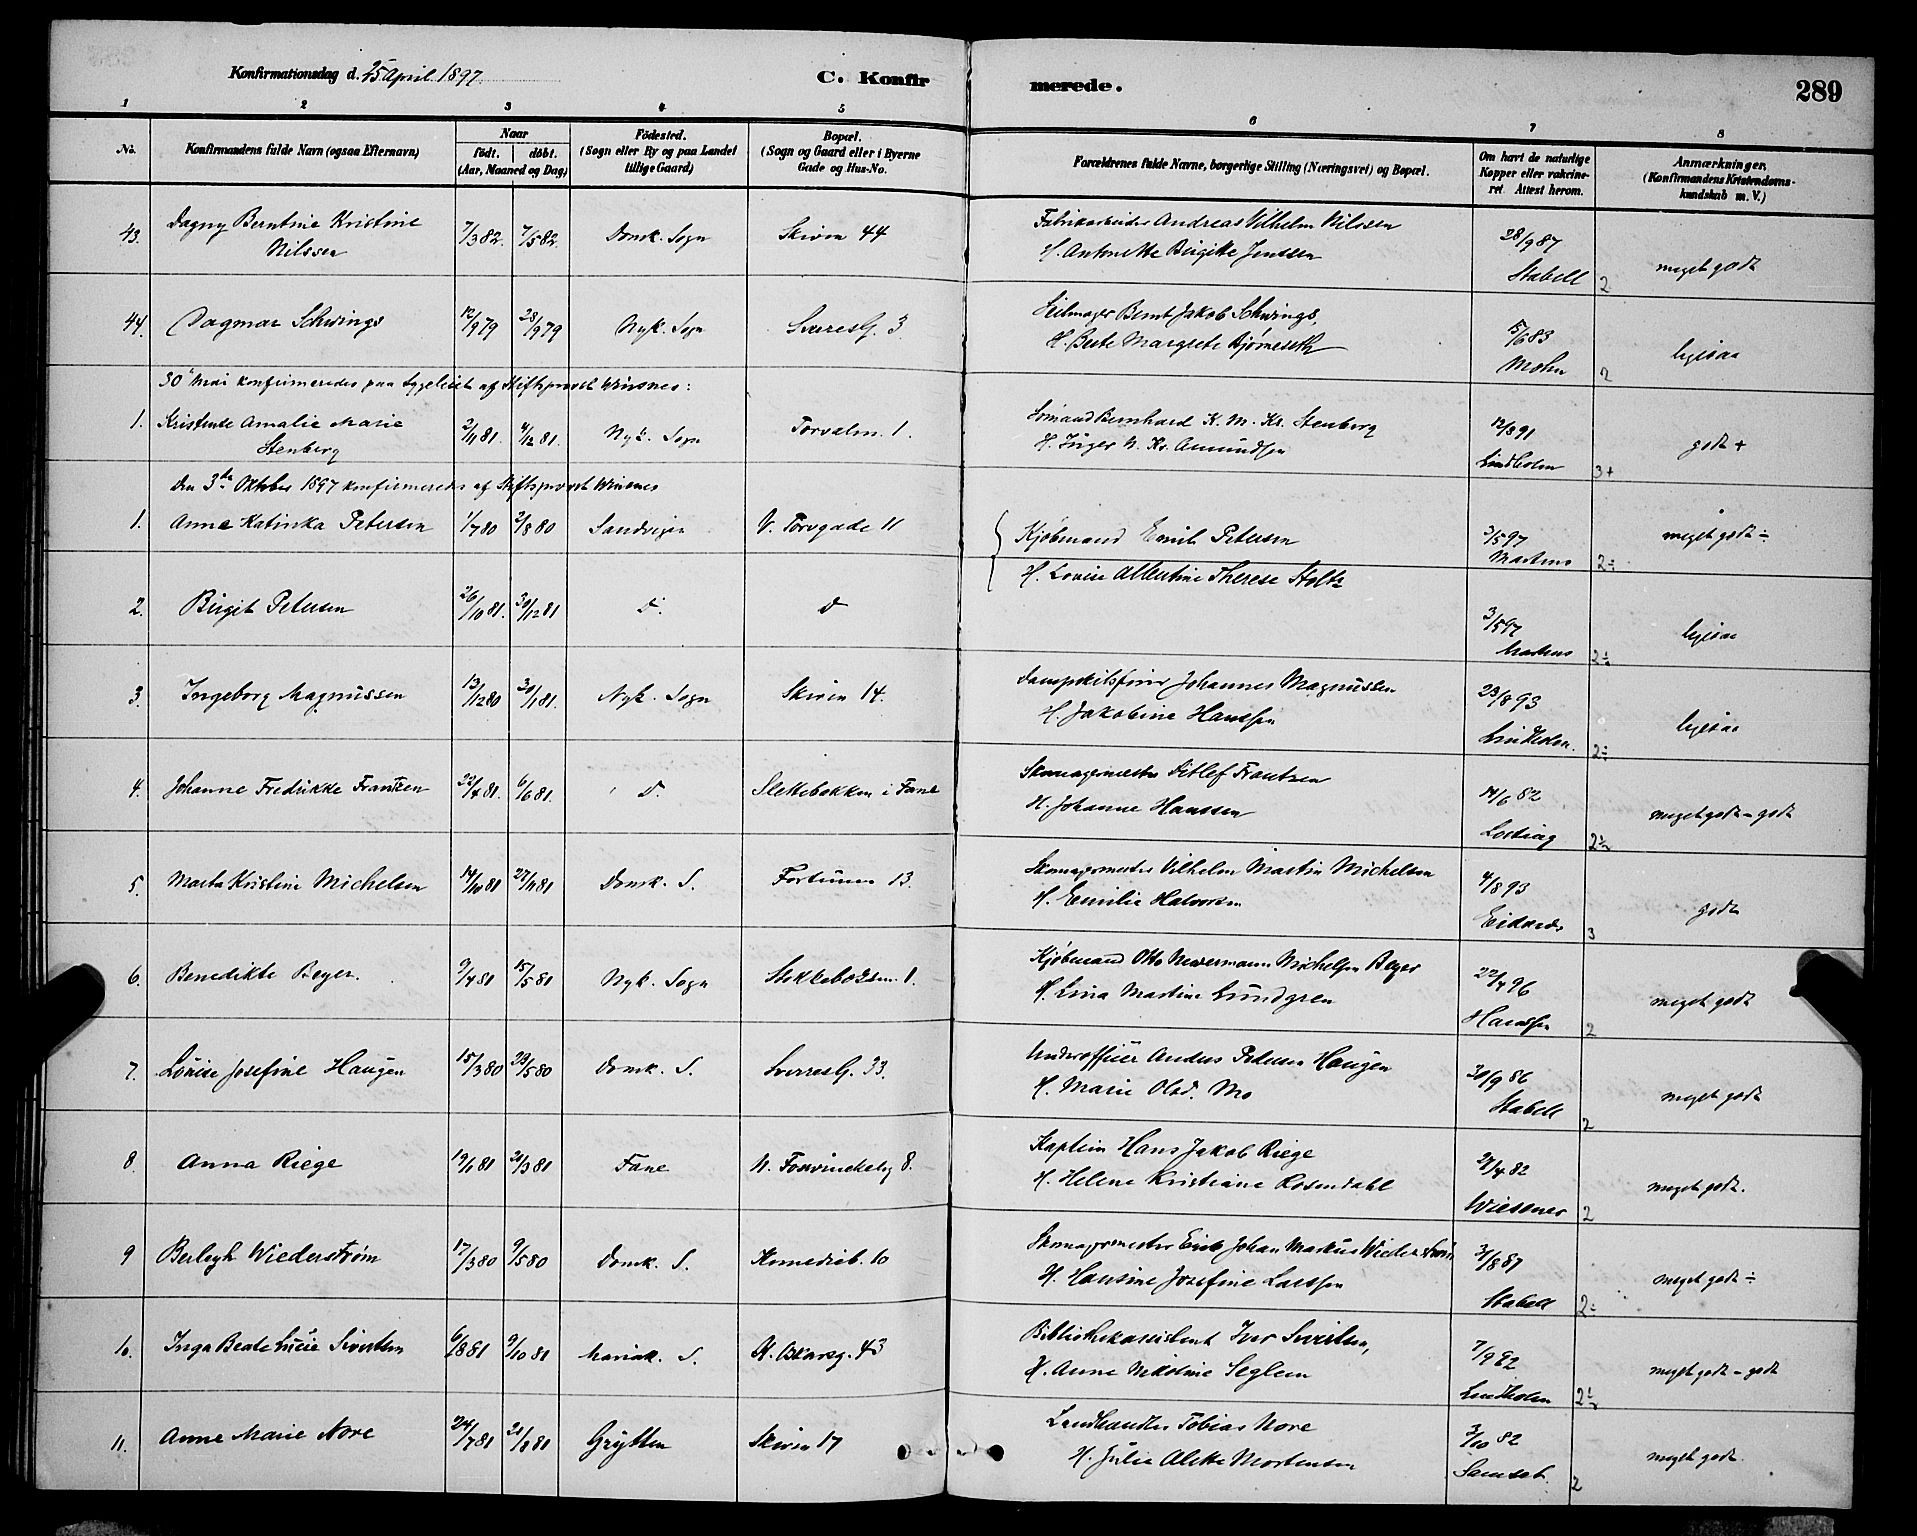 Konfirmationsdag d. 25 April 1897.
C. Konfirmerede.
289
1 2 3 4 5 6 7 8
No.
Konfirmandens fulde Navn (ogsaa Efternavn)
Naar
födt. döbt.
(Aar, Maaned og Dag)
Födested.
(Sogn eller By og paa Landet
tillige Gaard)
Bopæl.
(Sogn og Gaard eller i Byerne
Gade og Hus-No.
Forældrenes fulde Navne, borgerlige Stilling (Næringsvei) og Bopæl.
Om havt de naturlige
Kopper eller vakcine-
ret. Attest herom.
Anmærkninger.
(Konfirmandens Kristendoms-
kundskab m. V.)
43. Dagny Berntine Kristine 7/3 82. 7/5 82. Domk. Sogn Skiven 44 Fabrikarbeider Andreas Vilhelm Nilssen 28/9 87
Nilssen H. Antonette Birgitte Jentsen Stabell 2 meget godt
44. Dagmar Schwings 12/9 79 28/9 79 Nyk. Sogn SverresG. 3. Seilmager Bernt Jakob Schwings, 15/6 83
H. Berte Margrete Bjørneseth Mohn 2 ligesaa
30' Mai konfirmeredes paa Sygeleiet af Stiftsprovst Winsnes:
1. Kristense Amalie Marie 2/11 81. 4/12 81. Nyk. Sogn Torvalm. 1. Sømand Bernhard K. M. Kr. Stenberg 12/8 91
Stenberg H. Inger N. Kr. Amundsen Lindholm 3+ godt +
Den 3die Oktober 1897 konfirmeredes af Stiftsprovst Winsnes
1. Anna Katinka Petersen 1/7 80 2/8 80 Sandvigen V. Torvgade 11 Kjøbmand Emil Petersen 3/5 97 meget godt ÷
H. Lovise Albertine Therese Stoltz Martens 2÷
2. Birgit Petersen 26/10 81. 30/12 81. D. D 3/5 97 ligesaa
Martens 2÷
3. Ingeborg Magnussen 13/12 80 30/1 81. Nyk. Sogn Skiven 14. Dampskibsfører Johannes Magnussen 23/8 93
H. Jakobine Hanssen Lindholm. 2÷ ligesaa
4. Johanne Fredrikke Frantzen 22/4 81. 6/6 81. D. Slettebakken i Fane Skomagermester Ditlef Frantzen 14/6 82
H. Johanne Hanssen meget godt - godt
5. Marta Kristine Michelsen 14/10 81 27/11 81 Domk. S. Fortunen 13. Skomagermester Vilhelm Martin Michelsen 4/8 93
H. Emilie Halvorsen 3 godt
6. Benedikte Beyer. 9/4 81 15/5 81 Nyk. Sogn 1. Kjøbmand Otto Nevermann Michelsen Beyer 22/4 96
H. Lina Martine Lundgren Hanssen 2 meget godt
7. Lovise Josefine Haugen 15/3 80 23/5 80 Domk. S. SverresG. 33. Underofficer Anders Pedersen Haugen 30/9 86
H. Marie Olsd. Mo Stabell 2 meget godt
8. Anna Riege 19/1 81 20/3 81 Fane 8. Kaptein Hans Jakob Riege 27/4 82
H. Helene Kristiane Rosendahl Wiessner 2 meget godt.
9 Berlegh Wiederstrøm 17/3 80 9/5 80 Domk. S. Komedieb. 10 Skomagermester Erik Johan Markus Wiederstrøm 31/8 81
H. Hansine Josefine Larssen Stabell 2÷ meget godt ÷
10. Inga Beate Lucie Sivertsen 6/8 81 9/10 81 Mariak. S. N. Oskarsg. 43 Bibliothekassistent Iver Sivertsen, 7/9 82
H. Anne Nikoline Seglem Lindholm meget godt - godt
11. Anne Marie Nore 24/7 81 21/8 81 Grytten Skiven 17 Landhandler Tobias Nore 3/10 82
H. Julie Alette Mortensen 2 meget godt.